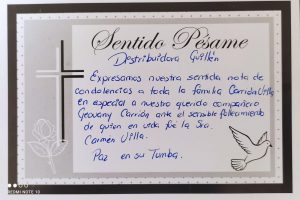 Sentido Pésame
Destribuidora Guillén
Expresamos nuestra sentida nota de
condolencias a toda la familia Carrión Villa
en especial a nuestro querido compañero
Geovany Carrión ante el sensible fallecimiento
de quien en vida fue la Sra.
Carmen Villa.
Paz en su Tumba.
REDMI NOTE 10